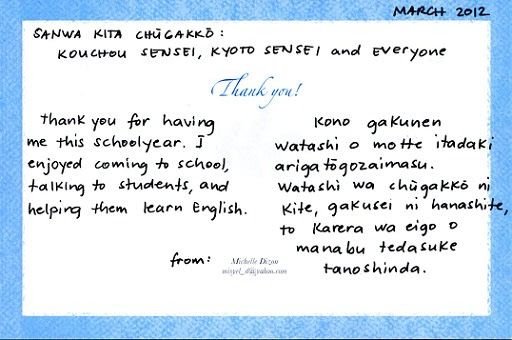 MARCH 2012
SANWA KITA CHŪGAKKŌ:
KOUCHOU SENSEI, KYOTO SENSEI and EVERYONE
Thank you!
thank you for having
me this schoolyear. I
enjoyed coming to school,
talking to students, and
helping them learn English.
Kono gakunen
watashi o motte itadaki
arigatōgozaimasu.
Watashi wa chūgakkō ni
Kite, gakusei ni hanashite,
to Karera wa eigo o
manabu tedasuke
tanoshinda.
from:
Michelle Dizon